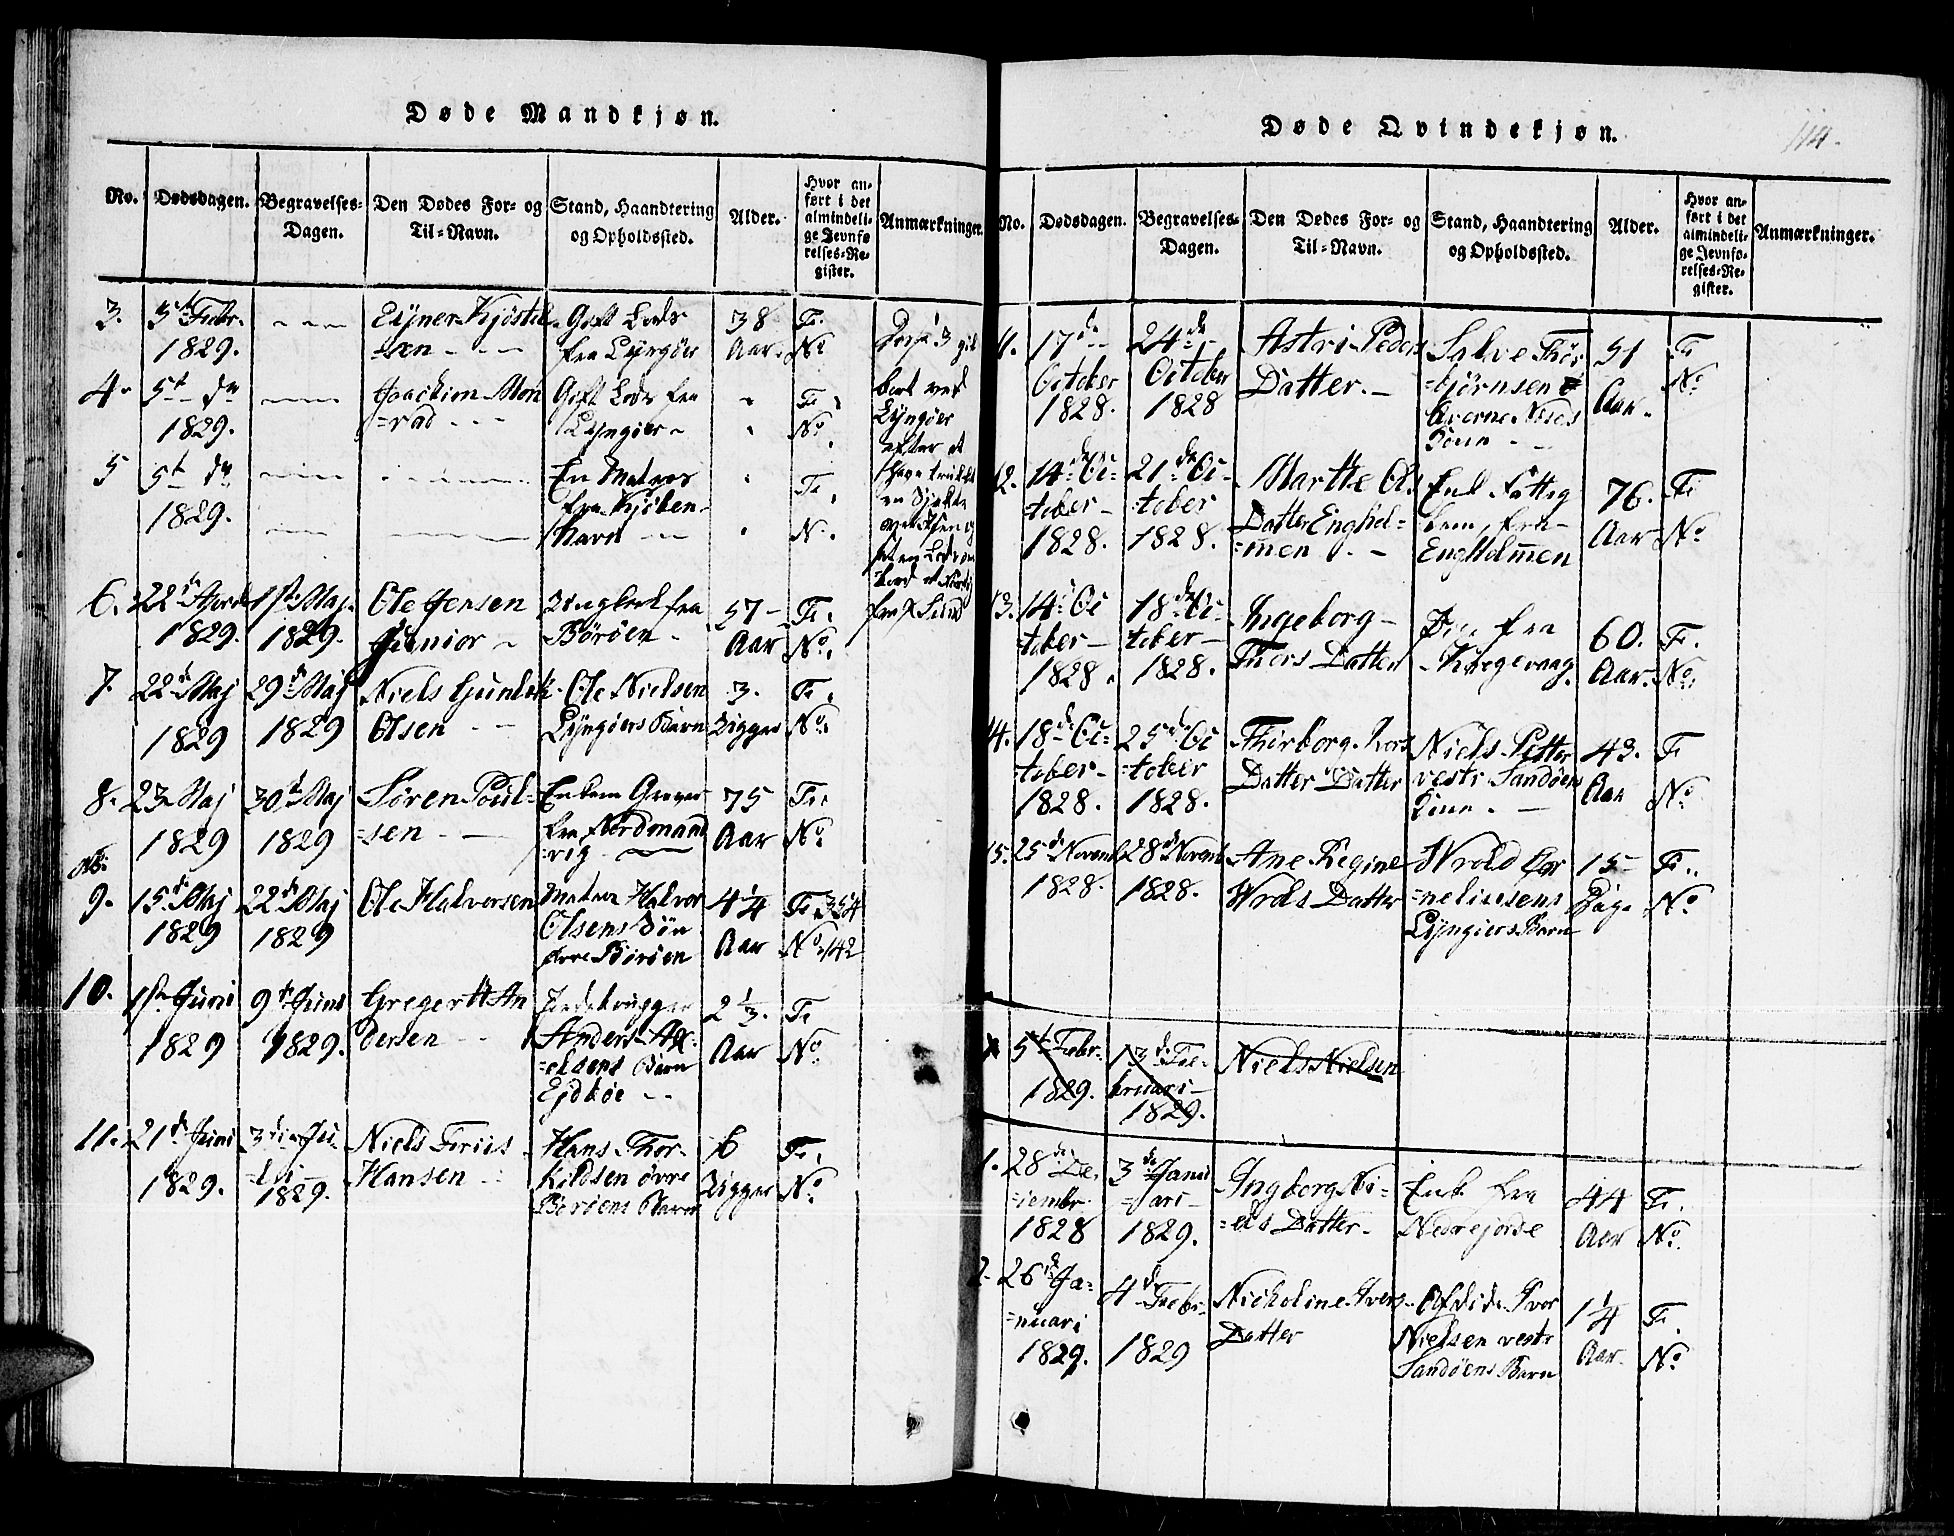 Døde Mandkjøn.
No.
Dødsdagen.
Begravelses-
Dagen.
Den Dødes For- og
Til-Navn.
Stand, Haandtering
og Opholdssted.
Alder.
Hvor an-
ført i det
almindeli-
ge Jevnfø
relses-Re-
gister.
Anmærkninger.
3.
5t Febr.
1829.
Ejner Kjøstel
=sen
Gift Lods
fra Lyngøer
38
Aar.
F.
No
4.
5t do
1829.
Joachim Mon
=rad
Gift Lods fra
Lyngøer
F.
No.
5
5t do
1829.
En Matros
fra Kjöben-
havn
F.
N.
Disse 3 gik
bort ved
Lyngøer
efter at
have
en
og
Lods om
bord
fra
6.
22d April
1829.
1ste Maj.
1829.
Ole Jensen
Junior
fra
Börøen
57
Aar
F.
No.
7.
22d Maj
1829
29d Maj
1829
Niels Gunlek
Olsen
Ole Nielsen
Lyngøers Barn
3.
Uger
F.
No.
8.
23 Maj
1829
30t Maj
1829
Søren Poul=
=sen
Enkem
fra Nordmand
=vig
75
Aar
F.
No.
NB.
9.
15d Maj
1829
22d Maj
1829
Ole Halvorsen
Matros Halvor
Olsens Sön
øvre Börøen
4 1/4
Aar
F. 354
No. 142
10.
1ste Juni
1829
9d Juni
1829.
Greger An
dersen
Anders Ax-
=elsens Barn
Ejdkøe
2 1/3.
Aar
F.
No.
11.
21d Juni
1829.
3die Ju-
=li
1829.
Niels Friis
Hansen
Hans Thor-
kildsen övre
Börøens Barn
6
Uger
F.
No.
Døde Qvindekjøn.
114.
No.
Dødsdagen.
Begravelses-
Dagen.
Den Dødes For- og
Til-Navn.
Stand, Haandtering
og Opholdssted.
Alder.
Hvor an-
ført i det
almindeli-
ge Jevnfø-
relses-Re-
gister.
Anmærkninger.
11.
17de
October
1828.
24de
October
1828
Astri Peders
Datter.
Salve Thor
=björnsen
Qverne
Kone
51
Aar.
F
No
12.
14de Oc-
tober
1828.
21de Oc-
=tober
1828.
Marthe Ols
Datter Enghol=
=men
Enk fattig
lem, fra
Engholmen
76.
Aar
F
No
13.
14 Oc
tober
1828.
18de Oc
tober
1828.
Ingeborg
Thors Datter
fra
60.
Aar.
F.
No.
14.
18de Oc=
=tober
1828.
25de Oc
=tober
1828.
Thorborg
Datter Datter
Niels Petter
vestr Sandøen
Kone
43.
Aar
F
No
15.
25d Novemb
1828.
28d Novemb
1828.
Ane Regine
Wrols Datter
Wrold Cor
=neliusens
Lyngøers Barn
15
Dage
F.
No
5t Febr.
1829.
13de Fe-
bruari
1829.
Niels Nielsen
1.
28de De.
=cembr
1828
3de Janu
=ari
1829.
Ingborg Ni=
=els Datter.
Enk fra
Nedrejorde
44
Aar
F.
No.
2.
26de Ja=
=nuari
1829.
4de Febr.
1829
Nicholine Ivers
Datter
Iver
Nielsen vestr
Sandöens Barn
1 1/4
Aar.
F.
No